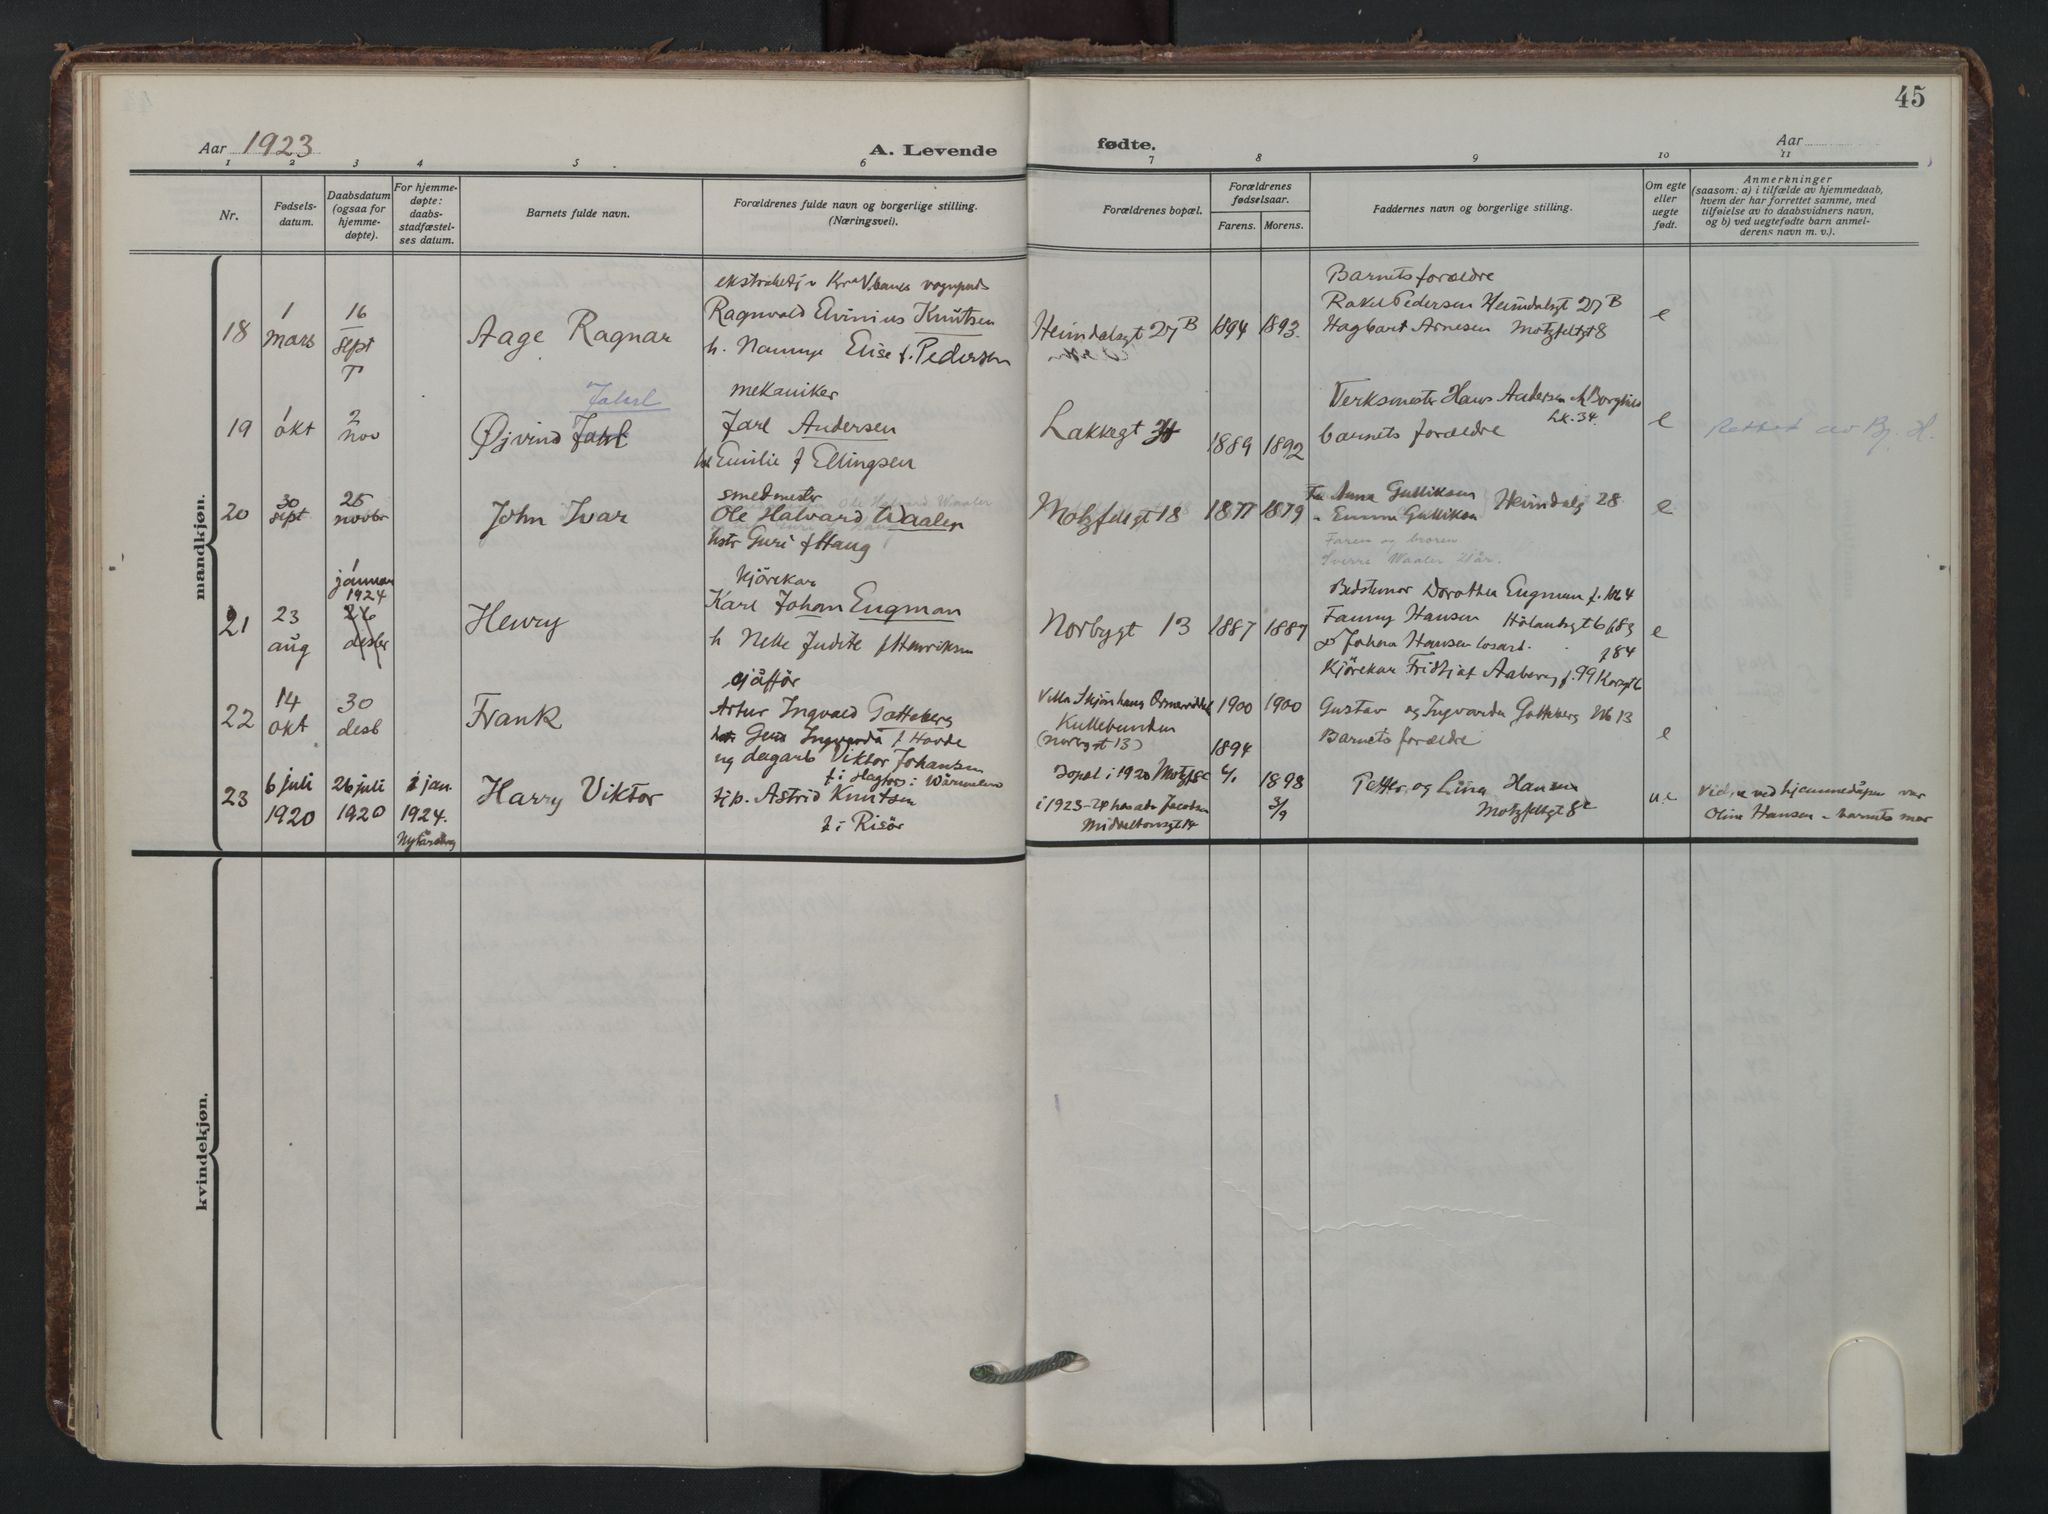 45
Aar 1923
A. Levende
fødte.
Aar
1 2 3 4 5 6 7 8 9 10 11
Nr.
Fødsels-
datum.
Daabsdatum
(ogsaa for
hjemme-
døpte).
For hjemme-
døpte:
daabs-
stadfæstel-
ses datum.
Barnets fulde navn.
Forældrenes fulde navn og borgerlige stilling.
(Næringsvei).
Forældrenes bopæl.
Forældrenes
fødselsaar.
Farens. Morens.
Faddernes navn og borgerlige stilling.
Om egte
eller
uegte
født.
Anmerkninger
(saasom: a) i tilfælde av hjemmedaab,
hvem der har forrettet samme, med
tilføielse av to daabsvidners navn,
og b) ved uegtefødte barn anmel-
derens navn m. v.).
mandkjøn.
18
1
mars
16
sept
T
Aage Ragnar
Ragnvald Elvinius Knutsen
h. Nannye Elise f. Pedersen
Heimdalsgt 27 B
1894 1893
Barnets forældre
Rakel Pedersen Heimdalsgt 27 B
Hagbart Arnesen Motzfeltgt 8
e
19
1
okt
2
nov
Jahl
Øjvind
mekaniker
Jarl Andersen
Emilie f Ellingsen
Lakkegt
1889 1892
Verksmester Hans Andersen
Lk. 34
barnets forældre
e
Rettet av Bj. H.
20
30
sept
25
novbr
John Ivar
smedmester
Ole Halvard Waaler
hstr Guri f Haug
Motzfeldgt 18
1877 1879
Anna Gulliksen Heimdalsg 28
Emma Gulliksen
Faren og broren
Sverre Waaler 21 år.
e
21
23
aug
1
januar
1924
26
desbr
Henry
kjörekar
Karl Johan Engman
h Nelle Judite f Henriksen
Norbygt 13
1887 1887
Bedstemor Dorothea Engman f. 1864
Fanny Hansen
Johan Hansen losarb. f 84
Kjörekar Fridtjof Aaberg f. 99 Korsgt 6
e
22
14
okt
30
desb
Frank
sjåfför
Artur Ingvald Gotteberg
Ingvarda f Hovde
Villa Skjönhaug
Kullebunden
(norbygt 13)
1900 1900
Gustav og Ingvarda Gotteberg Nb 13
Barnets forældre
e
23
6 juli
1920
26 juli
1920
1 jan.
1924.
Harry Viktor
ug dagarb Viktor Johansen
f i Hagfors i Wärmeland
tjp. Astrid Knutsen
f i Risör
bopel i 1920 Motzf 8c
i 1923-24 hos arb Jacobsen
Middeltonsgt 14
1894
1898
3/9
Petter og Lina Hansen
Motzfeltgt 8c
u.e
ved hjemmedåpen var
Oline Hansen - barnets mor
kvindekjøn.